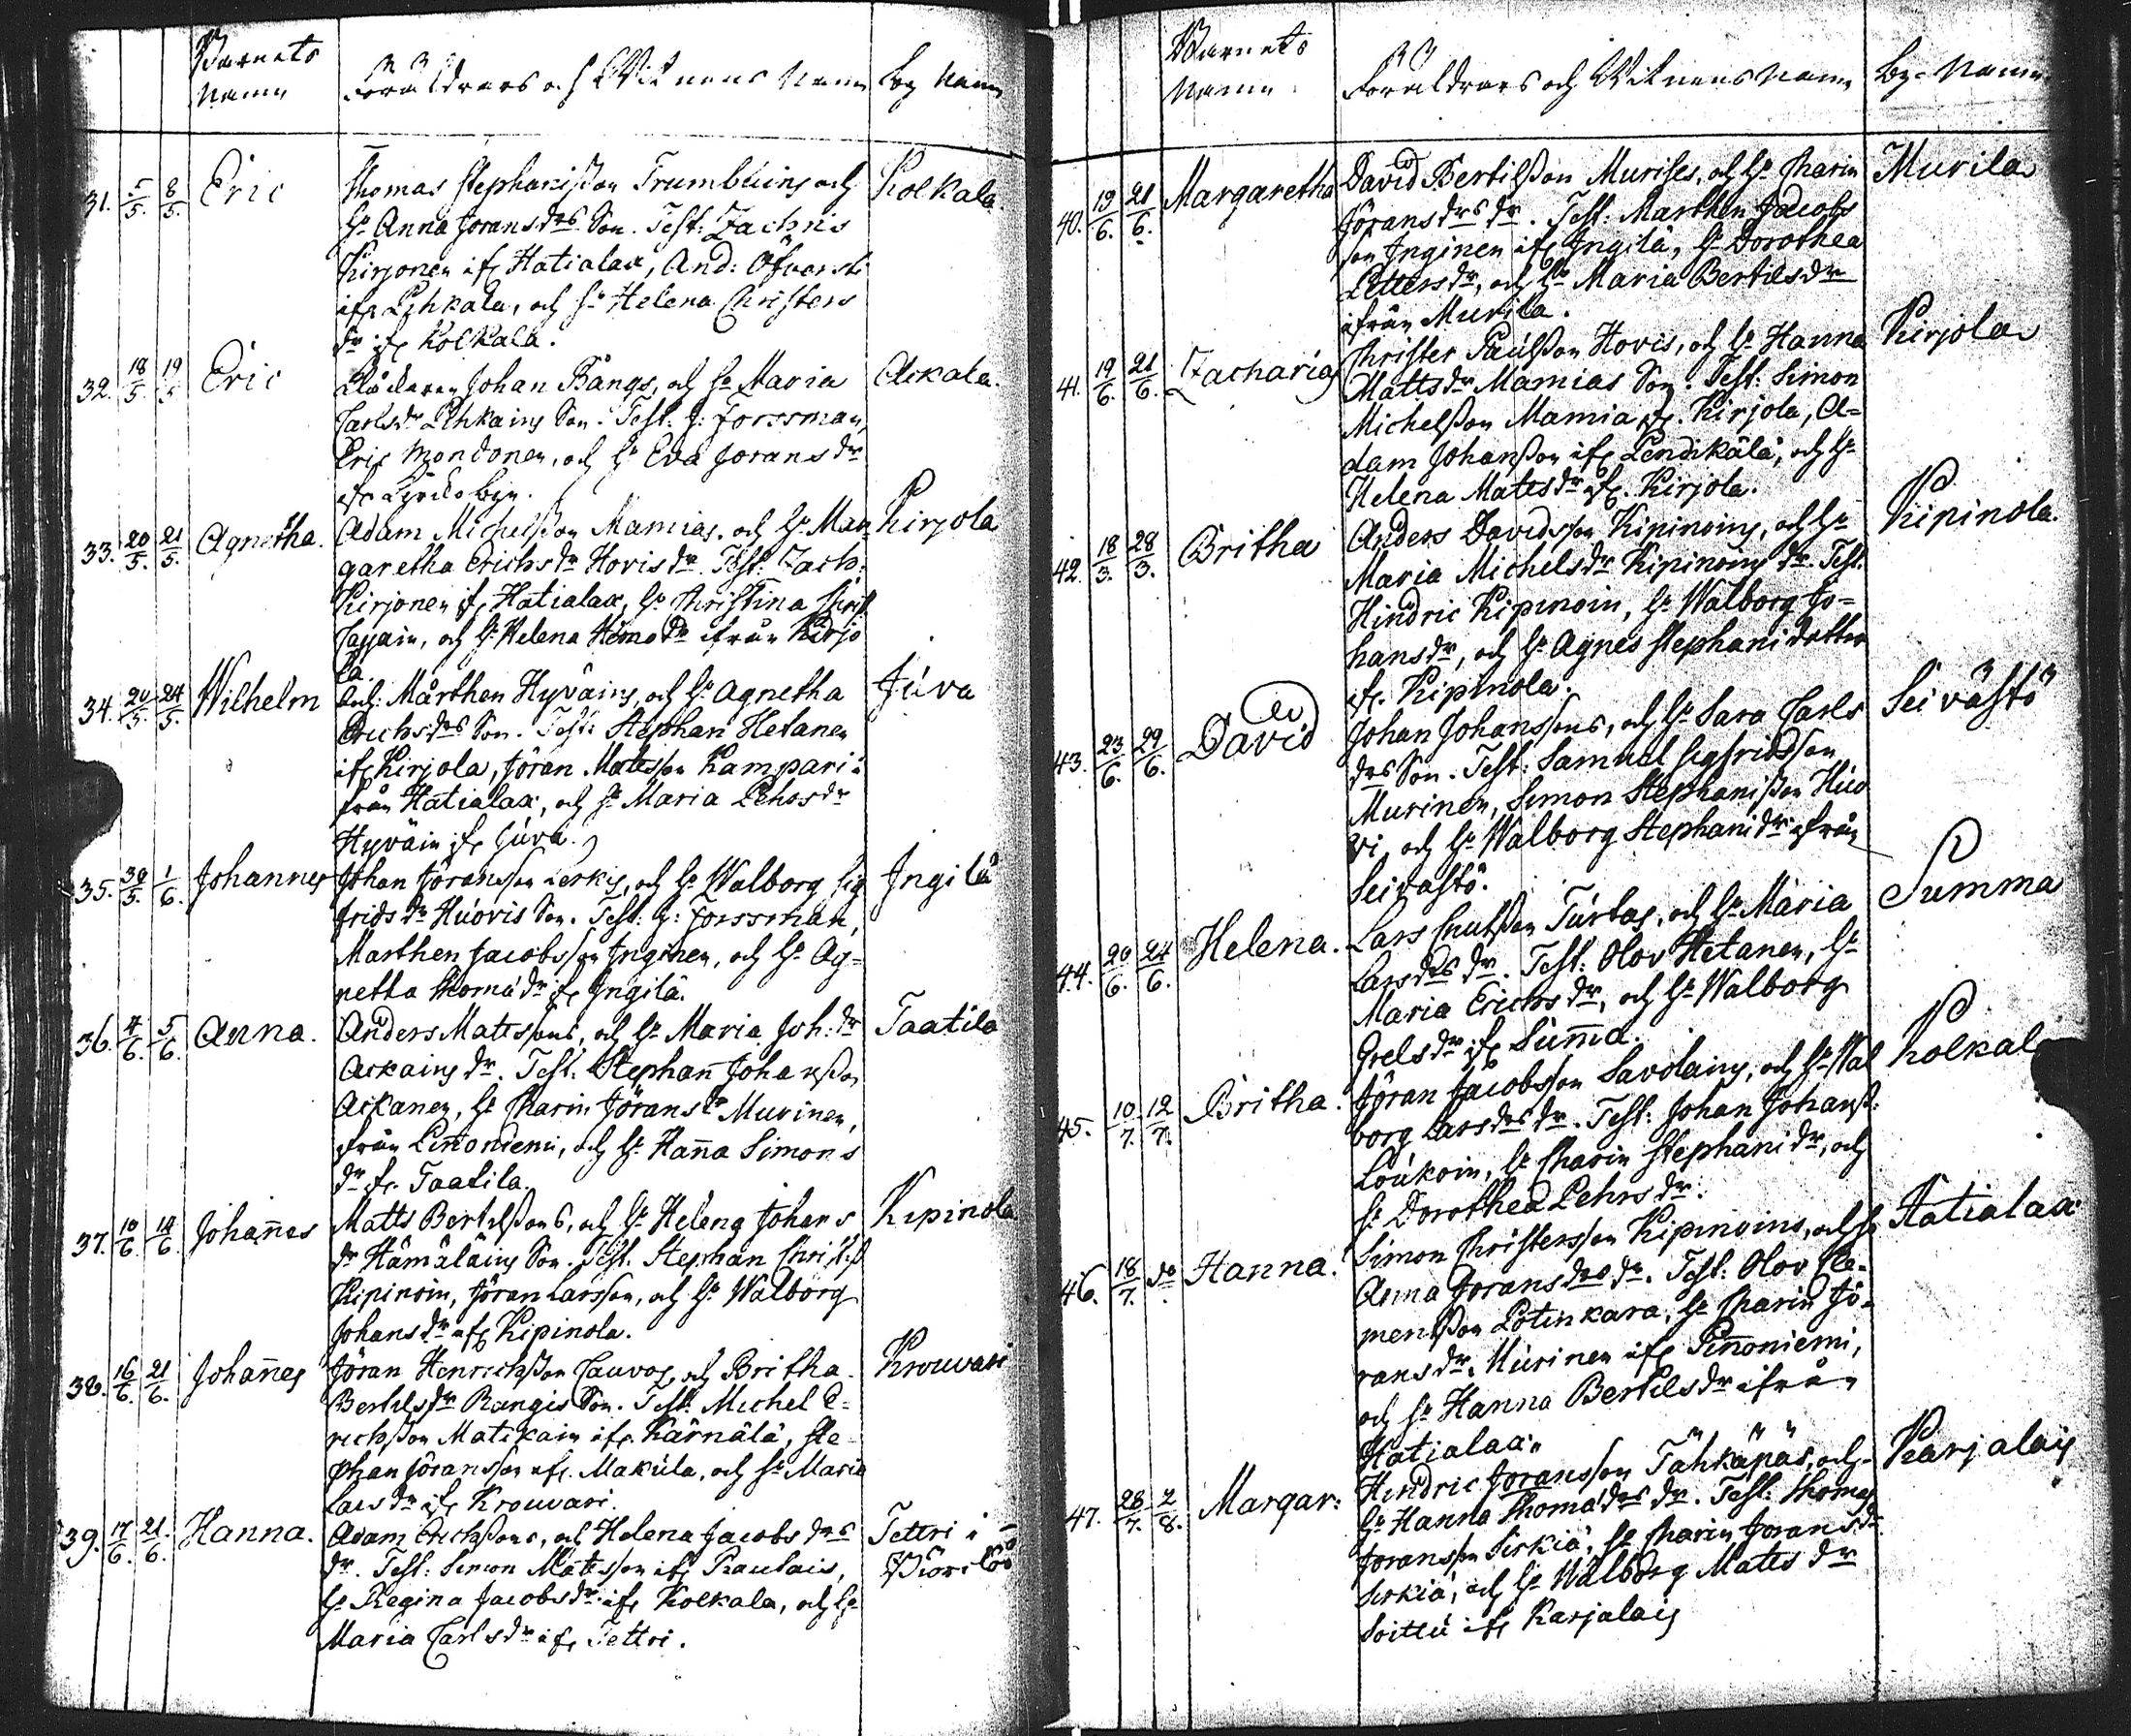 Barnets
Namn
Föräldrars och Witnens Namn
By Namn
31. 5/5. 8/5. Eric
Thomas Stephanisson Trumbuins och
Hu Anna Joransdrs Son. Test: Zachris
Kirjonen ifr Hatialax, And:
ifr Pihkala, och Hu Helena Christers
dr ifr Kolkala.
Kolkala.
32. 18/5. 19/5 Eric
Johan Bångs, och Hu Maria
Carlsdr Pihkains Son. Test: J: Forssman
Eric Mondonen, och Hu Eva Joransdr
ifr
Ackala.
33. 20/5. 21/5. Agnetha.
Adam Michelsson Mamias, och Hu Mar
garetha Erichsdr Hovis dr. Test: Zach:
Kirjonen ifr Hatialax, Hu Christina
och Hu Helena dr ifrån Kirjo
la.
Kirjola
34. 20/5. 24/5. Wilhelm
Mårthen Hyväins, och Hu Agnetha
Erichsdrs Son. Test: Stephan Hetanen
ifr Kirjola, Jöran Matsson Kampari i
från Hatialax, och Hu Maria Pehrsdr
Hyväin ifr Juva.
Juva
35. 30/5. 1/6. Johannes
Johan Jöransson Lerkis, och Hu Walborg Sig
fridsdr Huovis Son. Test: J: Forssman,
Marthen Jacobsson Inginen, och Hu Ag=
netta Thomædr ifr Ingilä.
Ingilä
36. 4/6. 5/6. Anna.
Anders Matssons, och Hu Maria Joh: dr
Ackains dr. Test: Stephan Johansson
Ackanen, Hu Charin Jöransdr Murinen,
från Pinnoniemi, och Hu Hanna Simons
dr ifr Taatila.
Taatila
37. 10/6. 14/6. Johañes
Matts Bertilssons, och Hu Helena Johans
dr Hämäläins Son. Test. Stephan Christ:s
Kipinoin, Jöran Larsson, och Hu Walborg
Johansdr ifr Kipinola.
Kipinola
38. 16/6. 21/6. Johañes
Jöran Henrichsson Cauvos, och Britha
Bertilsdr Rangis Son. Test: Michel E=
richsson Matikain ifr. Kärnälä, Ste
phan Jöransson ifr. Makula, och Hu Maria
Larsdr ifr Krouvari.
Krouvari
39. 17/6. 21/6. Hanna.
Adam Erichssons, och Helena Jacobsdrs
dr. Test: Simon Matsson ifr Paulais,
Hu Regina Jacobsdr ifr Kolkala, och Hu
Maria Carlsdr ifr Tettri.
Tettri i
Biörkö
Barnets
Namn
Föräldrars och Witnens Namn
By-Namn
40. 19/6. 21/6. Margaretha
David Bertilsson Murises, och Hu Charin
Jöransdrs dr. Test: Marthen Jacobs
son Inginen ifr Ingilä, Hu Dorothea
Pettersdr, och Hu Maria Bertilsdr
ifrån Murila.
Murila
41. 19/6. 21/6. Zacharias
Christer Paulsson Hovis, och Hu Hanna
Mattsdr Mamias Son. Test: Simon
Michelsson Mamia ifr. Kirjola, A=
dam Johansson ifr Pendikälä, och Hu
Helena Matsdr ifr. Kirjola.
Kirjola
42. 18/3. 28/3. Britha
Anders Davidsson Kipinoins, och Hu
Maria Michelsdr Kipinoins dr. Test.
Hindric Kipinoin, Hu Walborg Jo=
hansdr, och Hu Agnes Stephani dotter
ifr. Kipinola.
Kipinola.
43. 23/6. 29/6. David
Johan Johanssons, och Hu Sara Carls
drs Son. Test: Samuel Sigfridsson
Murinen, Simon Stephanisson Huo
vi, och Hu Walborg Stephanidr ifrån
Seivästö.
Seivästö
44. 20/6. 24/6. Helena.
Lars Cnutsson Turbas, och Hu Maria
Larsdrs dr. Test: Olov Hetanen, Hu
Maria Erichsdr, och Hu Walborg
Grelsdr ifr Sum̄a.
Summa
45. 10/7. 12/7. Britha.
Jöran Jacobsson Savolains, och Hu Wal
borg Larsdrs dr. Test: Johan Johanss:
Loukoin, Hu Charin Stephanidr, och
Hu Dorothea Pehrsdr.
Kolkal
46. 18/7. do Hanna.
Simon Christersson Kipinoins, och Hu
Anna Joransdrs dr. Test: Olov Cle=
mentsson Potinkara, Hu Charin Jö=
ransdr. Murinen ifr Pinnoniemi,
och Hu Hanna Bertilsdr ifrån
Hatialax.
Hatialax
47. 28/7. 2/8. Margar:
Hindric Joransson Tähkäpäs, och
Hu Hanna Thomædrs dr. Test: Thomas
Joransson Sirkiä, Hu Charin Joransdr
Sirkiä, och Hu Walborg Matts dr
Soittu ifr Karjalais
Karjalais